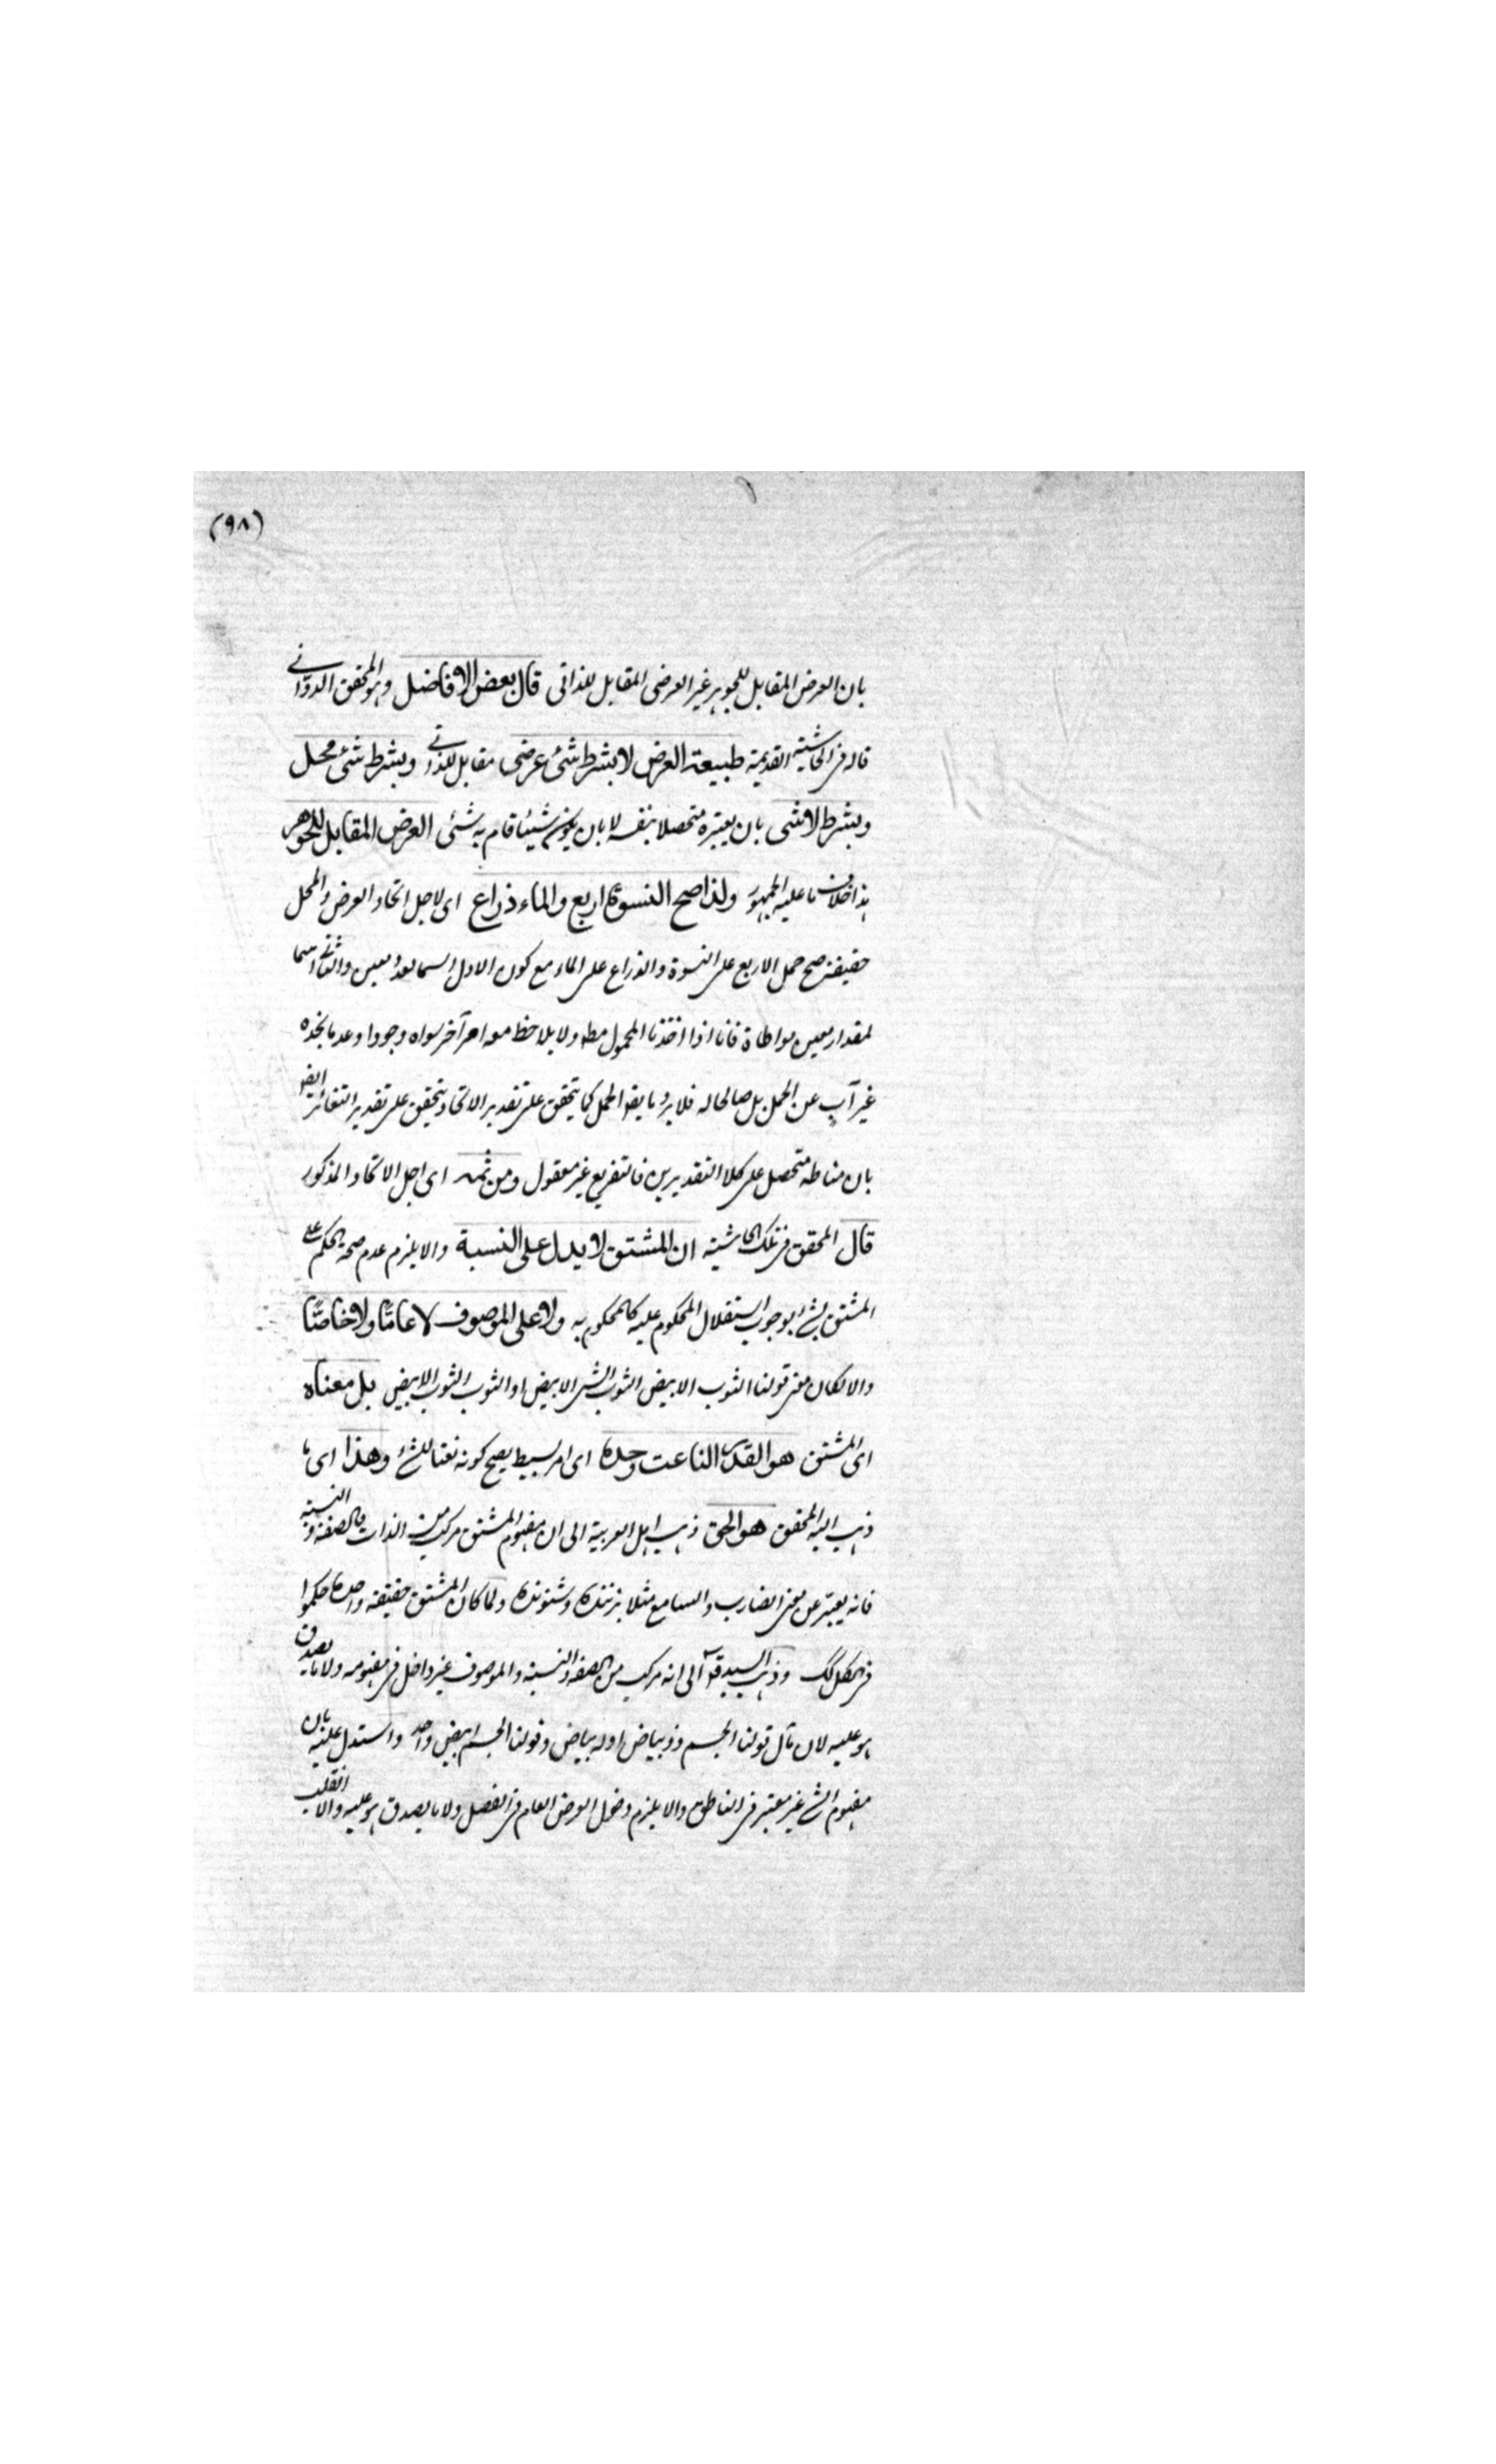 (٩٨)
بان العرض المقابل للجوهر غير العرضى المقابل للذاتى قال بعض الافاضل وهو المحقق الدوانى
قاله فى الحاشية القديمة طبيعة العرض لا بشرط شئ عرضى مقابل للذاتى وبشرط شئ محل
وبشرط لا شئ بان يعتبره متحصلا بنفسه لا بان يكون شيئا قام به شئ العرض المقابل للجوهر
هذا خلاف ما عليه الجمهور ولذا صح النسوة اربع والماء ذراع اى لاجل اتحاد العرض والمحل
حقيقة صح حمل الاربع على النسوة والذراع على الماء مع كون الاول اسما لعدد معين والثانى اسما
لمقدار معين مواطاة فانا اذا اخذنا المحمول مطه ولا يلاحظ معه امر آخر سواه وجودا وعدما نجده
غير آب عن الحمل بل صالحا له فلا يرد ما يقه الحمل كما يتحقق على تقدير الاتحاد يتحقق على تقدير التغائر ايضا
بان مناطه متحصل على كلا التقديرين فالتفريع غير معقول ومن ثمه اى اجل الاتحاد المذكور
قال المحقق فى تلك الحاشية ان المشتق لا يدل على النسبة والا يلزم عدم صحة الحكم على
المشتق بشئ بوجوب استقلال المحكوم عليه كالمحكوم به ولا على الموصوف لا عامّا ولا خاصّا
والا لكان معنى قولنا الثوب الابيض الثوب الشئ الابيض او الثوب الثوب الابيض بل معناه
اى المشتق هو القدر الناعت وحده اى امر بسيط يصح كونه نعتا للشئ وهذا اى ما
ذهب اليه المحقق هو الحق ذهب اهل العربية الى ان مفهوم المشتق مركب من الذات والصفة والنسبة
فانه يعتبر عن معنى الضارب والسامع مثلا بزننده وشنونده ولما كان المشتق حقيقة واحدة حكموا
فى الكل لك وذهب السيد قد الى انه مركب من الصفة والنسبة والموصوف غير داخل فى مفهومه ولا ما يصدق
هو عليه لان مآل قولنا الجسم ذو بياض او له بياض وقولنا الجسم ابيض واحد واستدل عليه بان
مفهوم الشئ غير معتبر فى الناطق والا يلزم دخول العرض العام فى الفصل ولا ما يصدق هو عليه والا انقلب